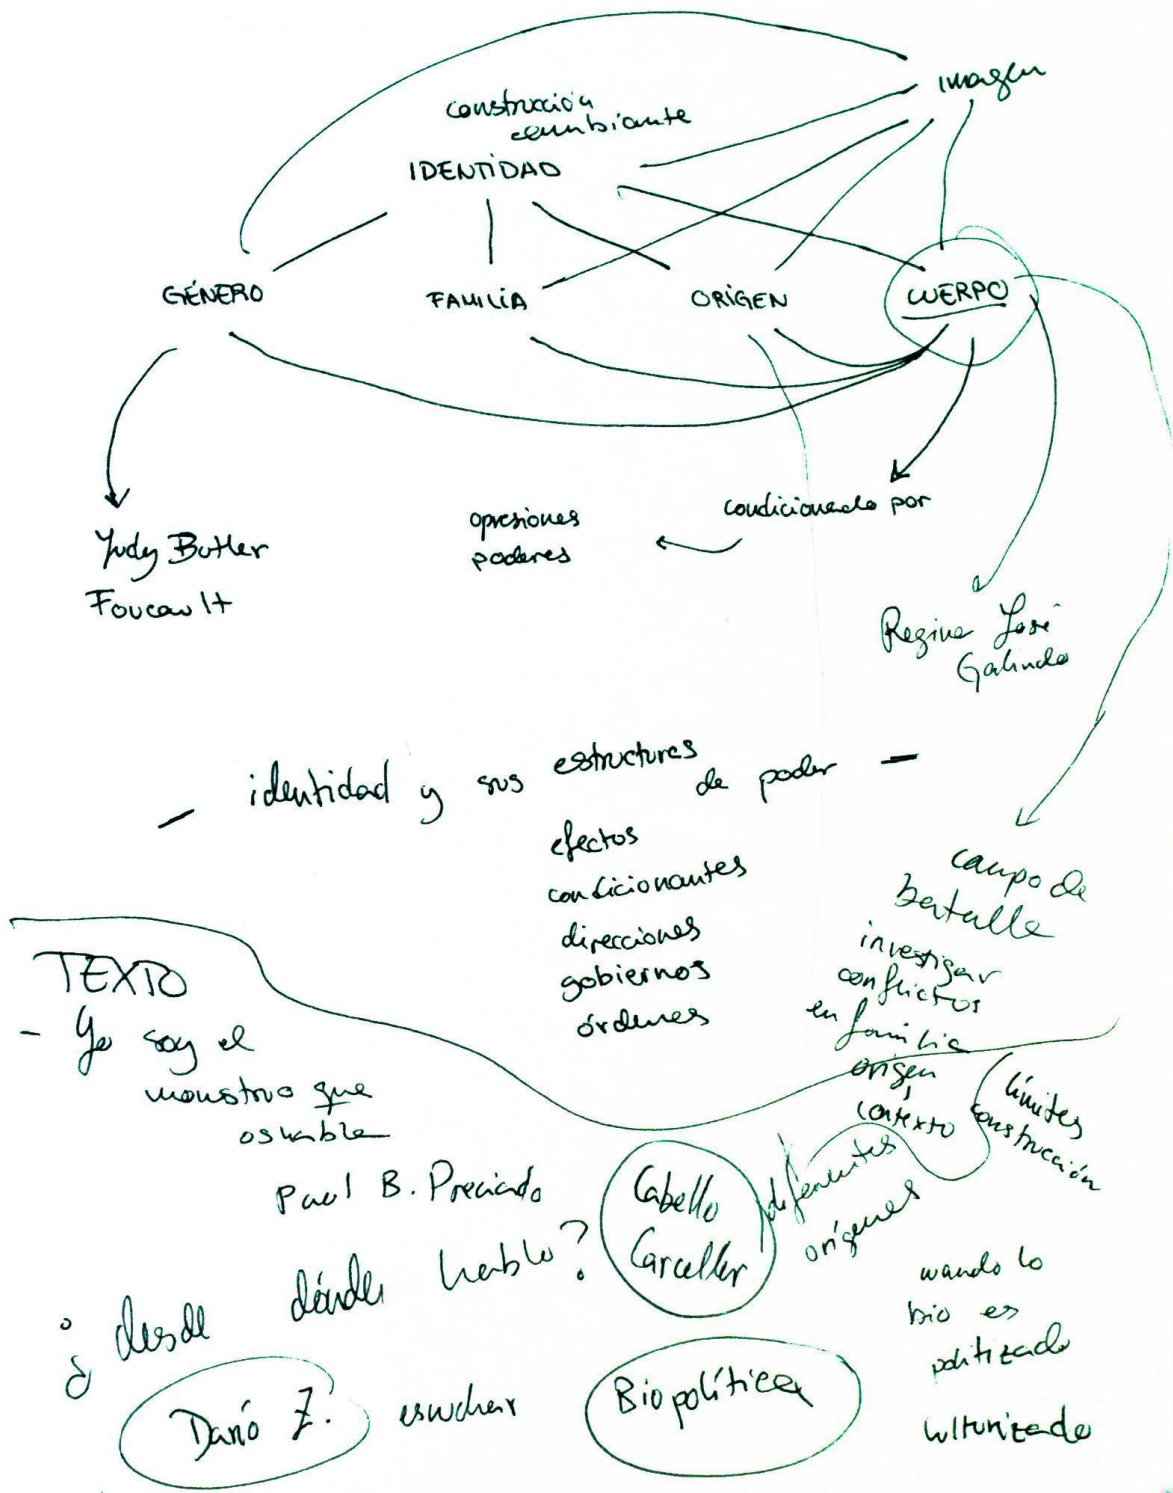 imagen
construcción
cambiante
IDENTIDAD
GÉNERO
FAMILIA
ORIGEN
CUERPO
condicionado por
opresiones
poderes
Judy Butler
Foucault
Regina José
Galindo
- identidad y sus estructuras
de poder -
efectos
condicionantes
direcciones
gobiernos
órdenes
campo de
batalla
investigar
conflictos
en familia
origen,
contexto
límites
construcción
TEXTO
- Yo soy el
monstruo que
os habla
Paul B. Preciado
Cabello
Carceller
diferentes
orígenes
¿desde dónde hablo?
Darío Z.
escuchar
Biopolítica
cuando lo
bio es
politizado
culturizado